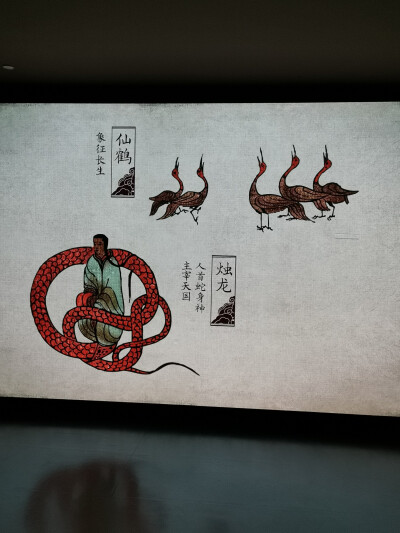 仙鹤
象征长生
烛龙
人首蛇身神
主宰天国